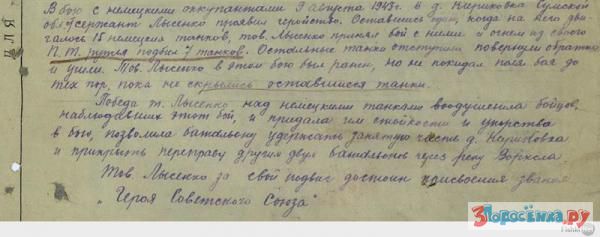 В бою с немецкими оккупантами 9 августа 1943 г. в д. Кириковка Сумской
обл. сержант Лысенко проявил геройство. Оставшись один, когда на него дви-
галось 15 немецких танков, тов. Лысенко принял бой с ними и огнем из своего
П.Т. ружья подбил 7 танков. Остальные танки отступили, повернули обратно
и ушли. Тов. Лысенко в этом бою был ранен, но не покидал поля боя до
тех пор, пока не скрылись оставшиеся танки.
Победа т. Лысенко над немецкими танками воодушевила бойцов,
наблюдавших этот бой, и придала им стойкости и упорства
в бою, позволила батальону удержать занятую часть д. Кириковка
и прикрыть переправу других двух батальонов через реку Ворскла.
Тов Лысенко за свой подвиг достоин присвоения звания
„Героя Советского Союза"
для
3Поросёнка.ру